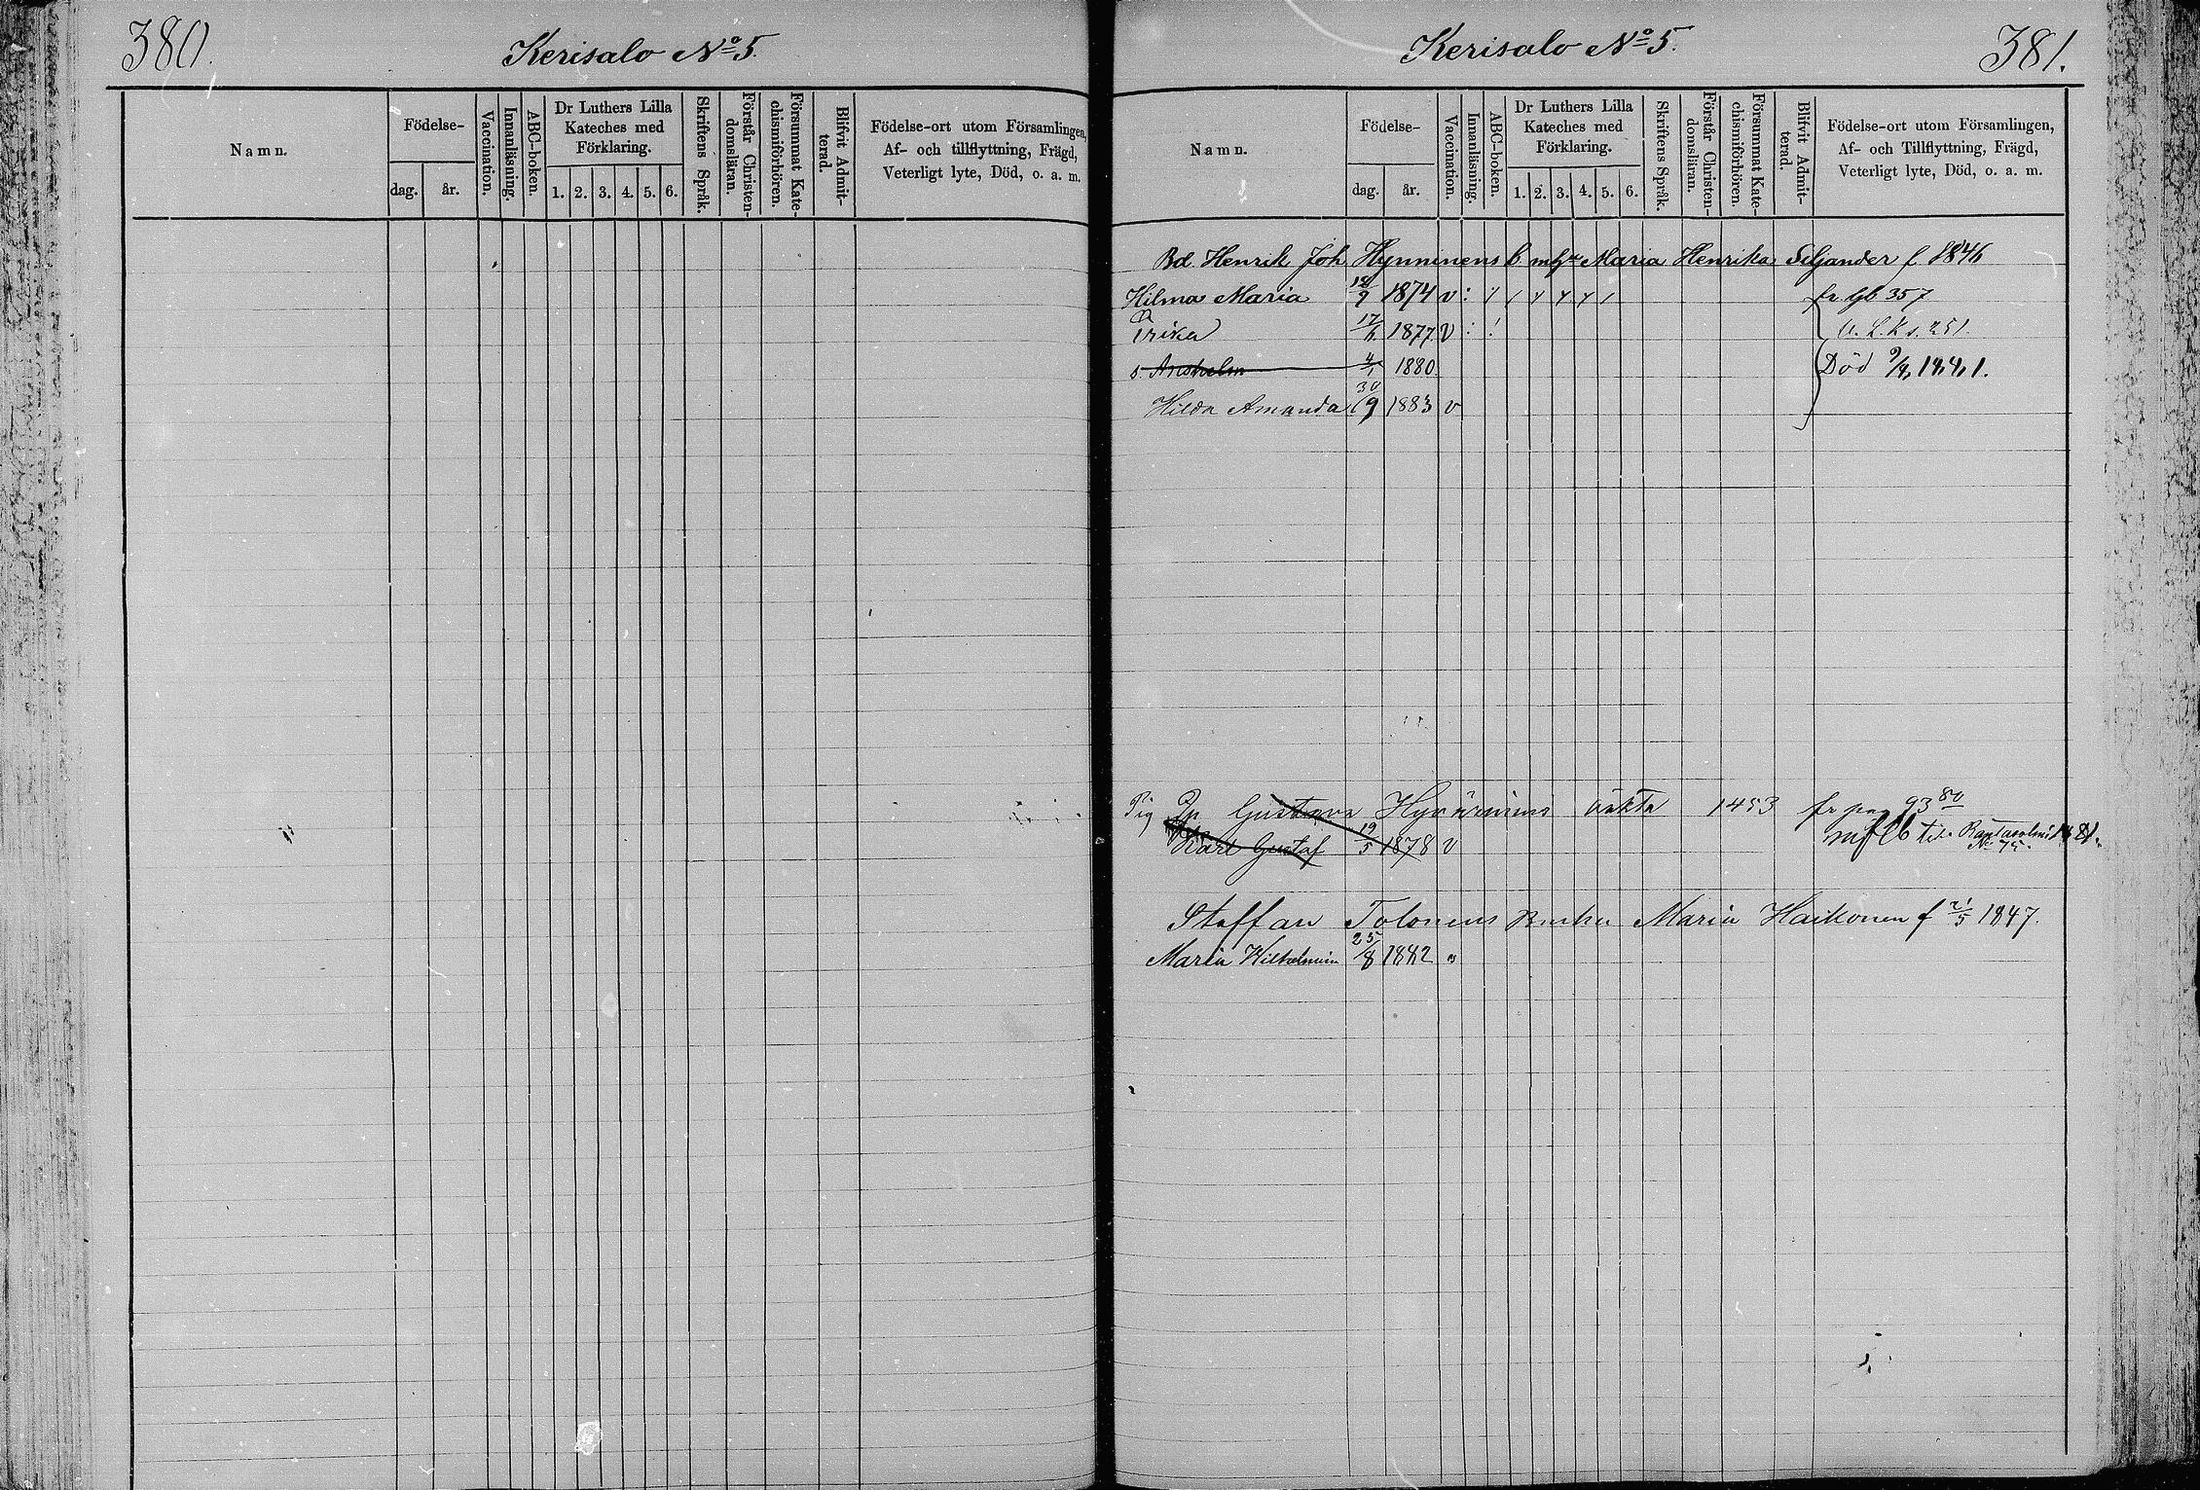 380.
Kerisalo No 5.
Namn.
Födelse-
dag.
år.
Vaccination.
Innanläsning.
ABC-boken.
Dr Luthers Lilla
Kateches med
Förklaring.
1. 2. 3. 4. 5. 6.
Skriftens Språk.
Förstår Christen-
domsläran.
Försummat Kate-
chismiförhören.
Blifvit Admit-
terad.
Födelse-ort utom Församlingen,
Af- och tillflyttning, Frägd,
Veterligt lyte, Död, o. a. m.
Kerisalo No 5.
381.
Namn.
Födelse-
dag.
år.
Vaccination.
Innanläsning.
ABC-boken.
Dr Luthers Lilla
Kateches med
Förklaring.
1. 2. 3. 4. 5. 6.
Skriftens Språk.
Förstår Christen-
domsläran.
Försummat Kate-
chismiförhören.
Blifvit Admit-
terad.
Födelse-ort utom Församlingen,
Af- och Tillflyttning, Frägd,
Veterligt lyte, Död, o. a. m.
Bd. Henrik Joh Hynninens b Maria Henrika Siljander f. 1846
Hilma Maria 1874 v fr lgb 357
1877 v
s. 1880 Död
Hilda Amanda 30/9 1883 v
Gustava 1453 fr pag 93 80
Karl Gustaf 19/5 1878 v till
Staffan Tolonens Maria f 21/5 1847.
Maria 25/8 1882 "